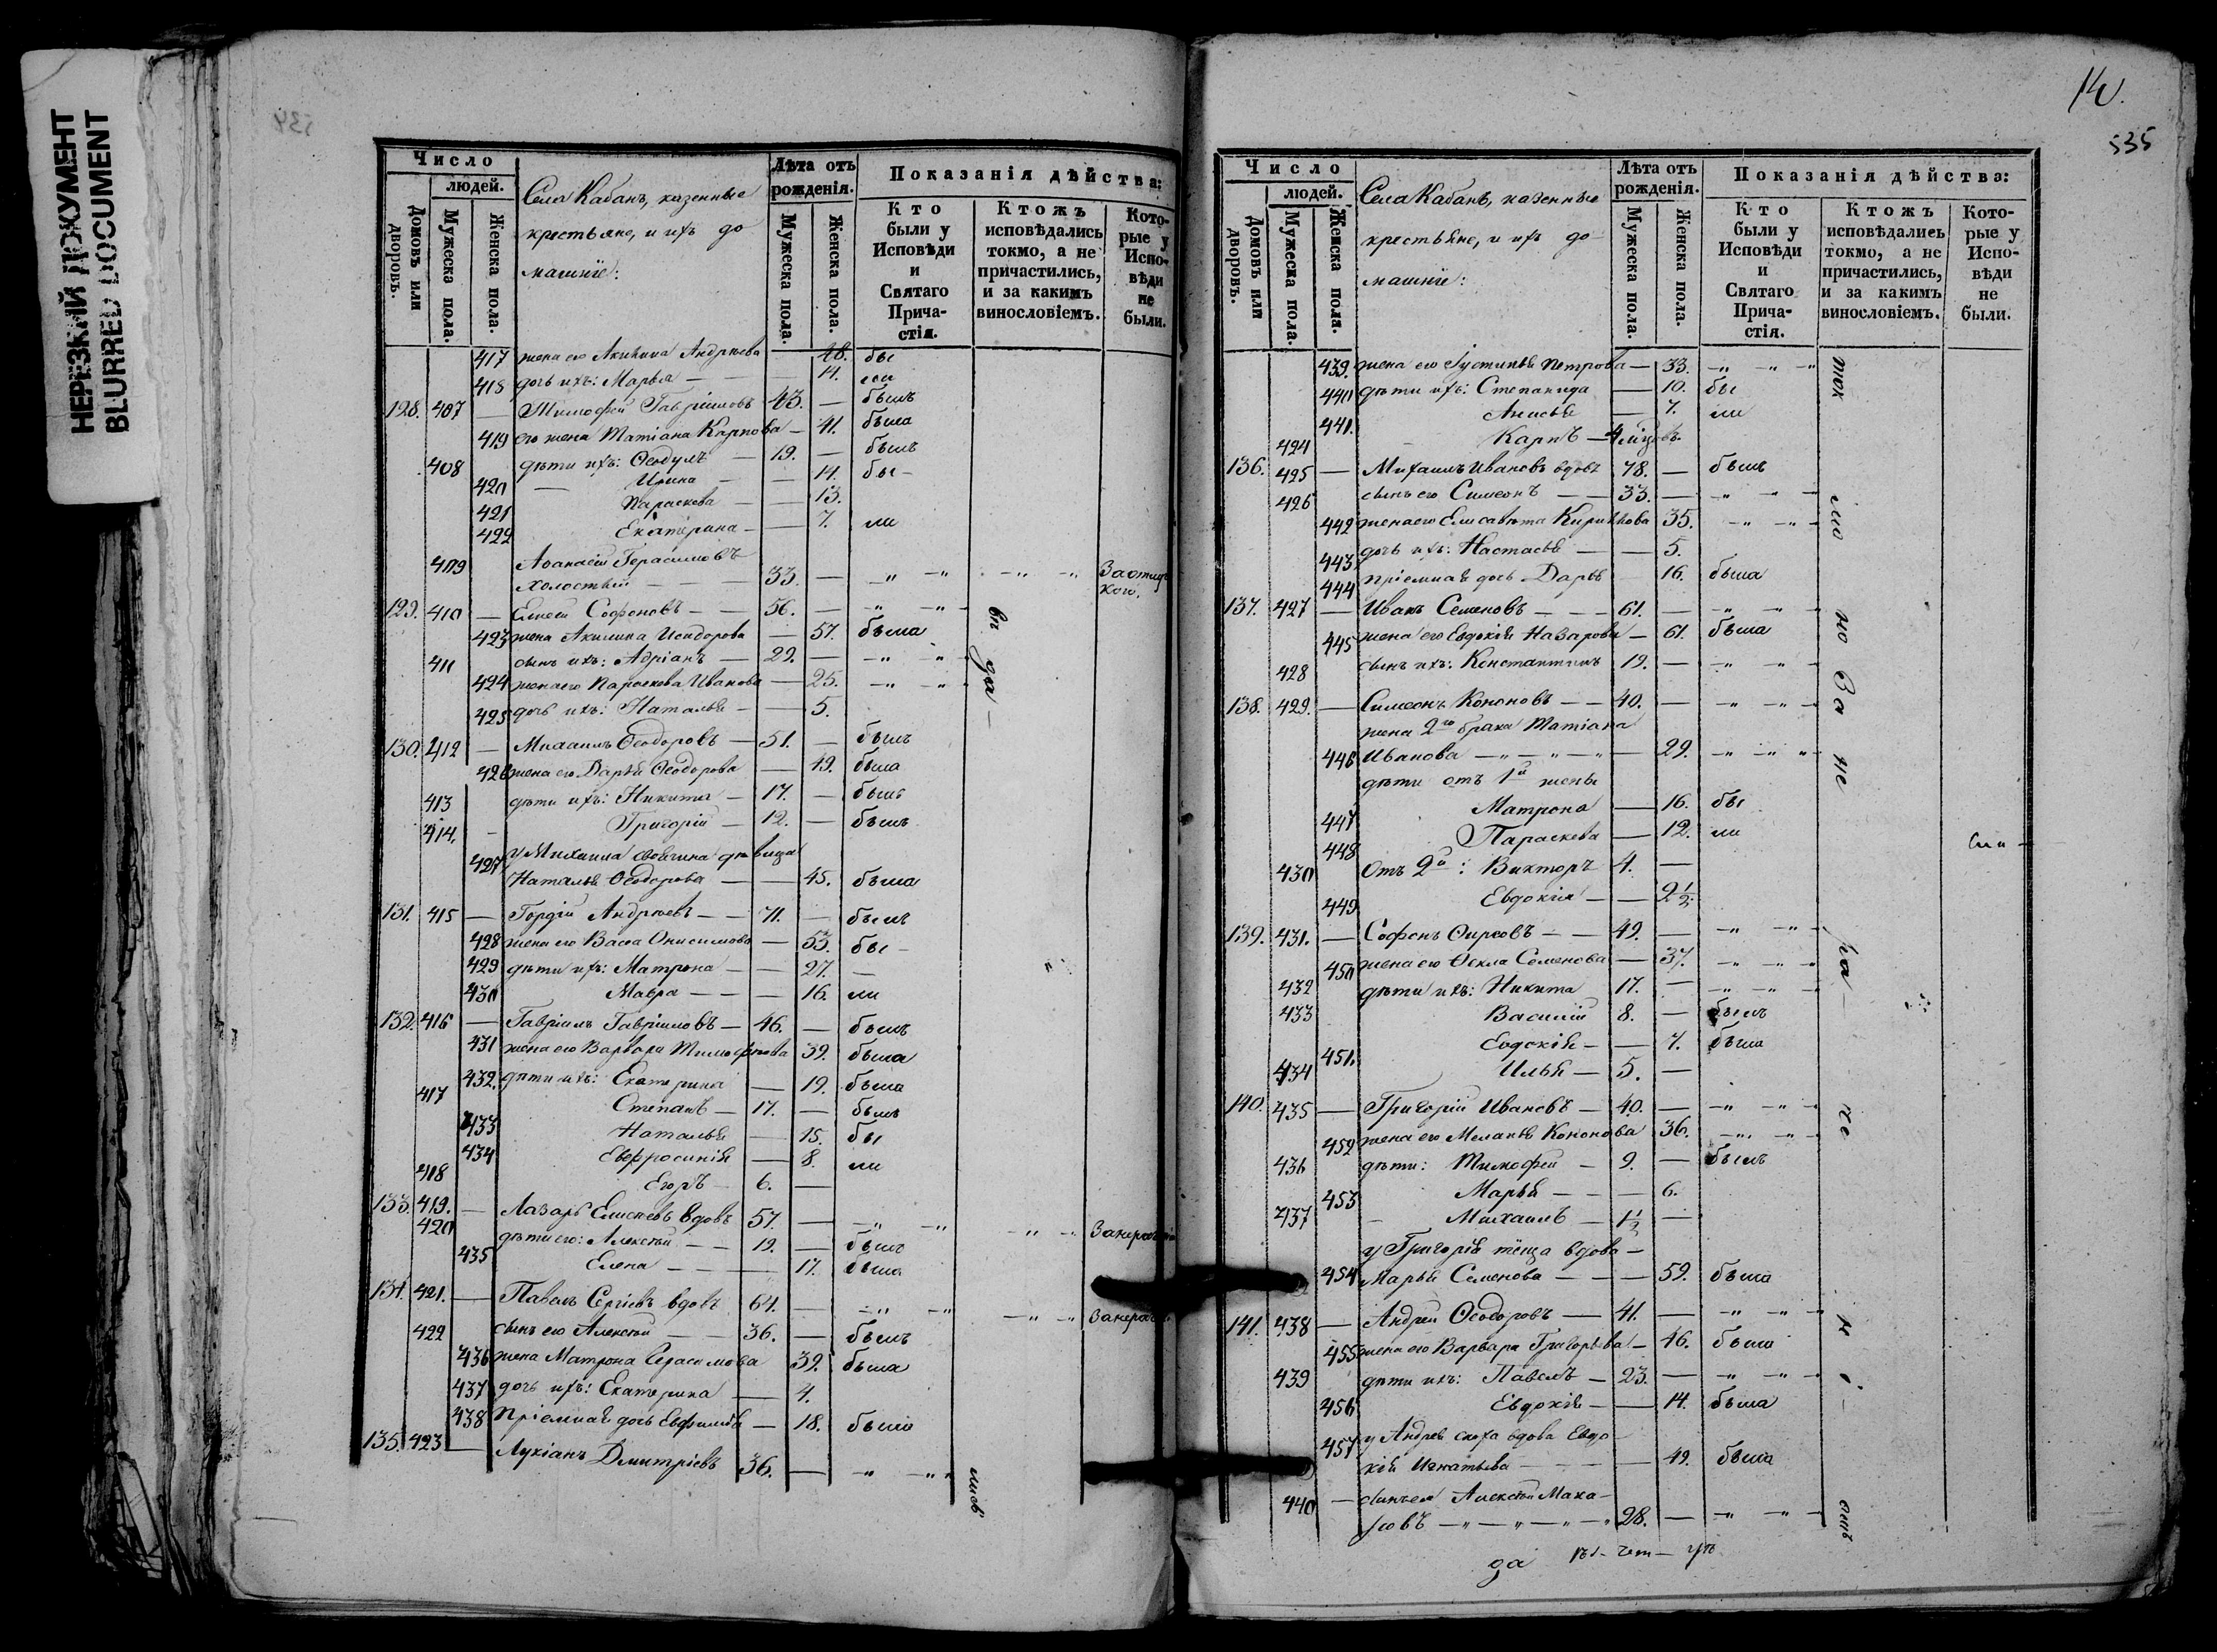 НЕРЕЗКИЙ ДОКУМЕНТ
BLURRED DOCUMENT
534
Число
людей.
Домовъ или дворовъ.
Мужеска пола.
Женска пола.
Села Кабанъ, казенные
крестьяне, и ихъ до
машніе:
Лѣта отъ рожденія.
Мужеска пола.
Женска пола.
Показанія дѣйства:
Кто были у Исповѣди и Святаго Причастія.
Ктожъ исповѣдались токмо, а не причастились, и за какимъ винословіемъ.
Которые у Исповѣди не были.
417 жена его Акилина Андрѣева — 48. бы
418 дочь ихъ: Марья — — 14. ли
128. 407 — Тимофей Гавріиловъ 43. — былъ
419 его жена Татіана Карпова — 41. была
408 дѣти ихъ: Ѳеодулъ — 19. — былъ
420 — Ирина — — 14. бы —
421 Параскева — — 13.
422 Екатерина — — 7. ли
409 Аѳанасій Герасимовъ
холостый — — — 33. — —„ —„ —„ —„
129. 410 — Елисей Софоновъ — — 56. — —„ —„ —
423 жена Акилина Исидорова — 57. была
411 сынъ ихъ: Адріанъ — 29. — —„ —„ —
424 жена его Параскева Иванова — 25. —„ —„ —
425 дочь ихъ: Наталья — — 5.
130. 412 — Михаилъ Ѳеодоровъ — 51. — былъ
426 жена его Дарья Ѳеодорова — 49. была
413 дѣти ихъ: Никита — 17. — былъ
414. — Григорій — 12. — былъ
427 у Михаила своячина дѣвица
Наталья Ѳеодорова — — 45. была
131. 415 — Гордій Андрѣевъ — — 71. — былъ
428 жена его Васса Онисимова — 53. бы —
429 дѣти ихъ: Матрона — — 27. —
430 Мавра — — — 16. ли
132. 416 — Гавріилъ Гавріиловъ — 46. — былъ
431 жена его Варвара Тимофѣева 39. была
432. дѣти ихъ: Екатерина — 19. была
417 Степанъ — 17. — былъ
433 Наталья — 15. бы
434 Евфросинія — 8. ли
418 Егоръ — 6. —
133. 419. — Лазарь Елисѣевъ вдовъ 57. — —„ —„ —„ —„
420 дѣти его: Алексѣй — — 19. — былъ
435 Елена — — — 17. была
134. 421. — Павелъ Сергіевъ вдовъ 64. — —„ —„ —„ —„
422 сынъ его Алексѣй — — 36. — былъ
436 жена Матрона Герасимова 39. была
437 дочь ихъ: Екатерина — 4.
438 Пріемная дочь Евфимія — 18. была
135. 423 — Лукіанъ Дмитріевъ 36. — —„ —„
14.
535
Число
людей.
Домовъ или дворовъ.
Мужеска пола.
Женска пола.
Села Кабанъ, казенные
крестьяне, и ихъ до
машніе:
Лѣта отъ рожденія.
Мужеска пола.
Женска пола.
Показанія дѣйства:
Кто были у Исповѣди и Святаго Причастія.
Ктожъ исповѣдались токмо, а не причастились, и за какимъ винословіемъ.
Которые у Исповѣди не были.
439. жена его Іустинія Петрова — 33. —„ —„ —„
440 дѣти ихъ: Степанида — 10. бы
441. Анисья — 7. ли
424 Карпъ — 4 мѣс.
136. 425 — Михаилъ Ивановъ вдовъ 78. — былъ
426 сынъ его Симеонъ — — 33. — —„ —„ —
442 жена его Елисавета Кириллова 35. —„ —„ —
443 дочь ихъ: Настасья — — 5.
444 пріемная дочь Дарья 16. была
137. 427 — Иванъ Семеновъ — — — 61. — —„ —„ —
445 жена его Евдокія Назарова — 61. была
428 сынъ ихъ: Константинъ 19. — —„ —„ —
138. 429. — Симеонъ Кононовъ — — 40. — —„ —„ —
жена 2го брака Татіана
446 Иванова —„ —„ —„ — 29. —„ —„ —„
дѣти отъ 1й жены
447 Матрона — 16. бы
448 Параскева — 12. ли
430 Отъ 2й: Викторъ 4. —
449 Евдокія — — 2½
139. 431. — Софонъ Фирсовъ — — 49. — —„ —„ —
450 жена его Ѳекла Семенова — 37. —„ —„ —
432 дѣти ихъ: Никита 17. — —„ —„ —
433 Василій 8. — былъ
451. Евдокія — — 7. была
434 Илья — 5. —
140. 435 — Григорій Ивановъ — 40. — —„ —„ —
452 жена его Меланія Кононова 36. —„ —„ —
436 дѣти: Тимофей — 9. — былъ
453 Марья — — — 6.
437 — Михаилъ — 1½ —
у Григорія теща вдова —
454 Марья Семенова — — — 59. была
141. 438 — Андрей Ѳеодоровъ — 41. — —„ —„ —
455 жена его Варвара Григорьева — 46. была
439 дѣти ихъ: Павелъ — 23. — —„ —„ —
456 Евдокія — — 14. была
457 у Андрея сноха вдова Евдо —
кія Игнатьева — — — — 49. была
440 — сынъ ея Алексѣй Мака —
ровъ —„ —„ —„ —„ 28. — —„ —„ —